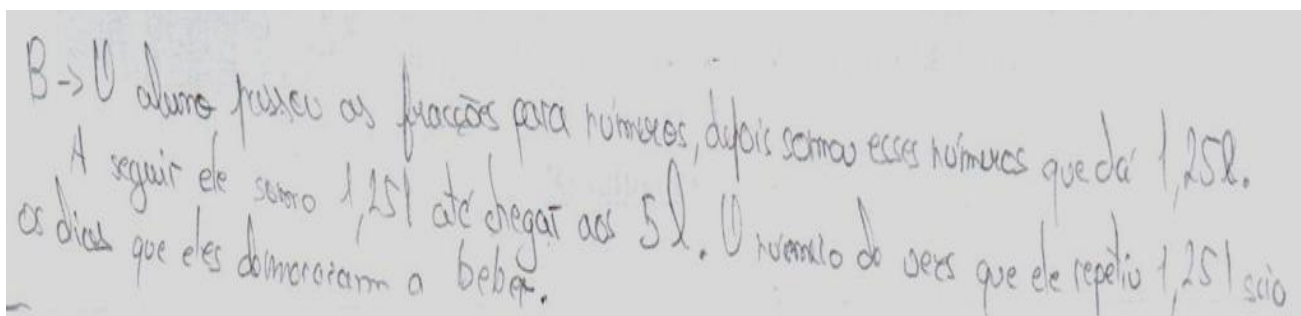 B -> O aluno passou as fracções para números, depois somou esses números que dá 1,25l.
A seguir ele somo 1,25l até chegar aos 5l. O número de vezs que ele repetiu 1,25l são
os dias que eles demoraram a beber.